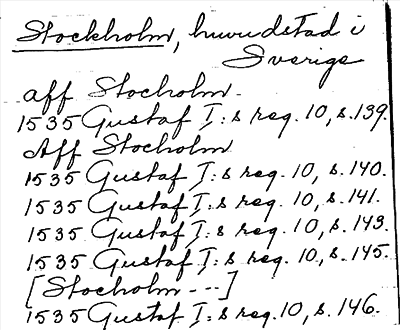 Stockholm, huvudstad i
Sverige
aff Stocholm.
1535 Gustaf I:s reg. 10, s. 139.
Aff Stocholm
1535 Gustaf I:s reg. 10, s. 140.
1535 Gustaf I:s reg. 10, s. 141.
1535 Gustaf I:s reg. 10, s. 143.
1535 Gustaf I:s reg. 10, s. 145.
[Stocholm ---]
1535 Gustaf I:s reg. 10, s. 146.